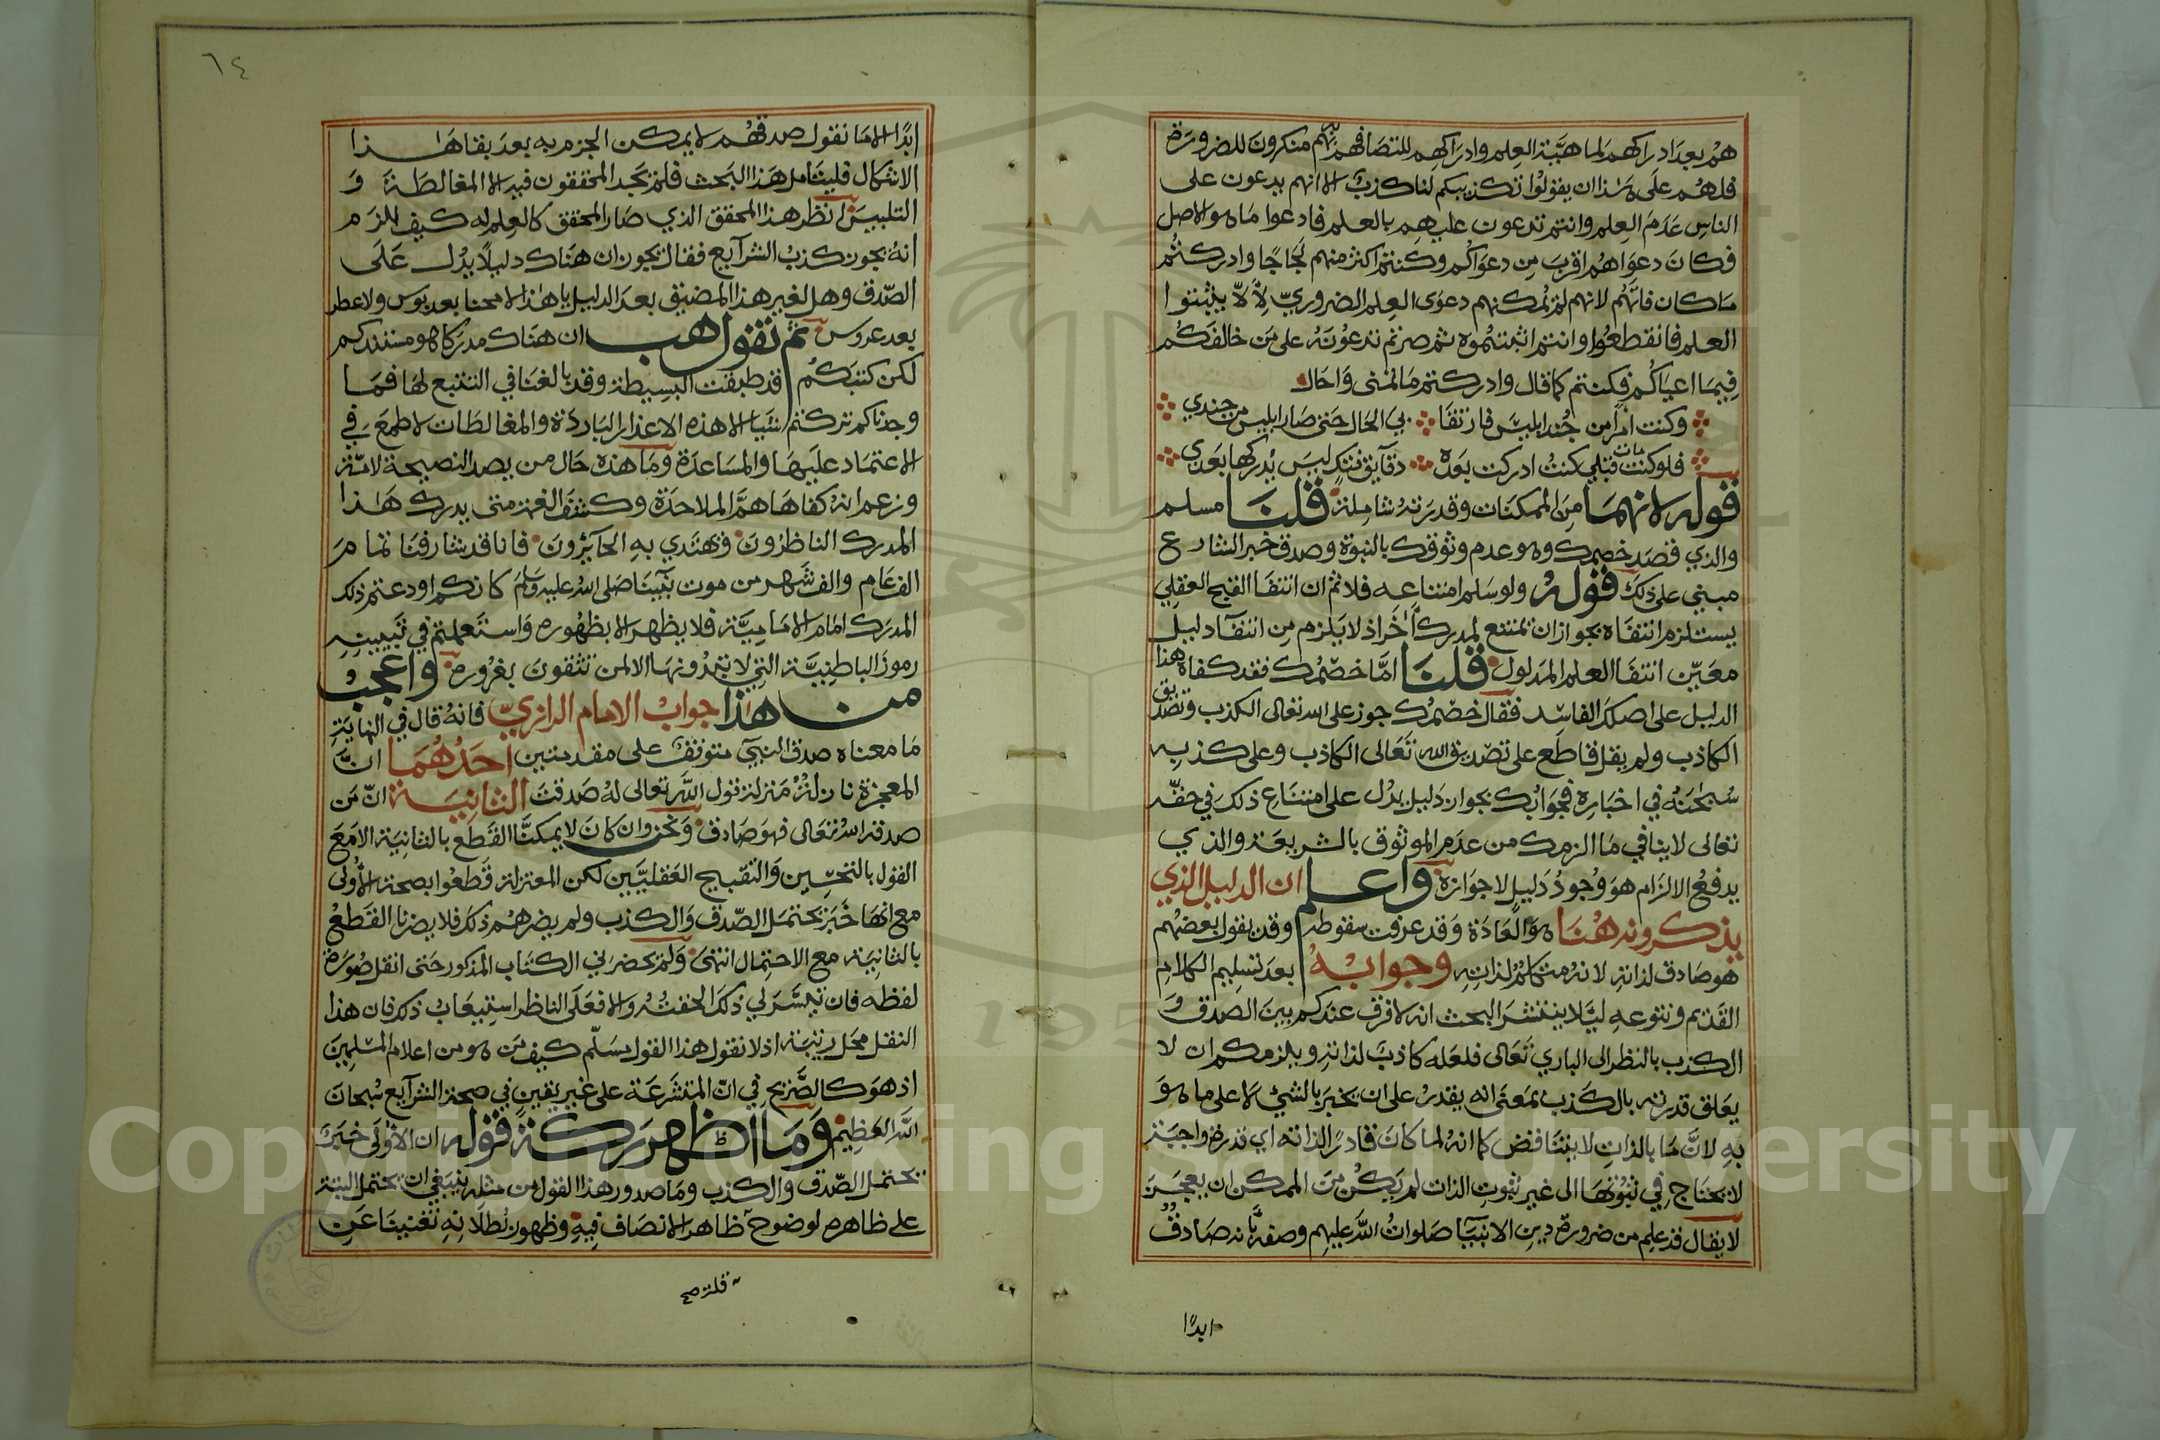 هم بعد ادراكهم لماهية العلم وادراكهم للتصافهم بهم منكرون للضرورة
فلهم على هذا ان يقولوا تكذيبكم لنا كذب الا انهم يدعون على
الناس عدم العلم وانتم تدعون عليهم بالعلم فادعوا ما هو الاصل
فكان دعواهم اقرب من دعواكم وكنتم اكثر منهم لجاجا وادركتم
ما كان فاتهم لانهم لم يمكنهم دعوى العلم الضروري لئلا يثبتوا
العلم فانقطعوا وانتم اثبتموه ثم صرتم تدعونه على من خالفكم
فيما اعياكم فكنتم كما قال وادركتم ما تمنى واحال
وكنت امرأ من جند ابليس فارتقا بي الحال حتى صار ابليس من جندي
فلو مات قبلي كنت ادركت بعده دقايق فتك ليس يدركها بعدي
قوله لانهما من الممكنات وقدرته شاملة قلنا مسلم
والذي قصد خصمك وهو عدم وثوقك بالنبوة وصدق خبر الشارع
مبني على ذلك قوله ولو سلم امتناعه فلا ثم ان انتفا القبح العقلي
يستلزم انتفاه بجواز ان تمتنع لمدرك اخر اذ لا يلزم من انتفآ دليل
معين انتفا العلم المدلول قلنا اما خصمك فقد كفاه هذا
الدليل على اصلك الفاسد فقال خصمك جوز على الله تعالى الكذب وتصديق
الكاذب ولم يقل قاطع على تصديق الله تعالى الكاذب وعلى كذبه
سبحنه في اخباره فجوابك بجوان دليل يدل على امتناع ذلك في حقه
تعالى لا ينافي ما الزمك من عدم الموثوق بالشريعة والذي
يدفع الالزام هو وجود دليل لا جوازه واعلم ان الدليل الذي
يذكرونه هنا هو العادة وقد عرفت سقوطه وقد يقول بعضهم
هو صادق لذاته لانه متكلم لذاته وجوابه بعد تسليم الكلام
القديم وتنوعه ليلا ينتشر البحث انه لا فرق عندكم بين الصدق و
الكذب بالنظر الى الباري تعالى فلعله كاذب لذاته ويلزمكم ان لا
يعلق قدرته بالكذب بمعنى انه يقدر على ان يخبر بالشئ لا على ما هو
به لان ما بالذات لا يتناقض كما انه لما كان قادرا لذاته اي قدرة واجبة
لا تحتاج في ثبوتها الى غير ثبوت الذات لم يكن من الممكن ان يعجز
لا يقال قد علم من ضرورة دين الانبيا صلوات الله عليهم وصفه بانه صادق
ابدا
٦٤
ابدا لانا نقول صدقهم لا يمكن الجزم به بعد بقا هذا
الاشكال فليتامل هذا البحث فلم يجد المحققون فيه الا المغالطة و
التلبيس انظر هذا المحقق الذي صار المحقق كالعلم له كيف الزم
انه يجون كذب الشرآيع فقال يجون ان هناك دليلا يدل على
الصدق وهل لغير هذا المضيق بعد الدليل يا هذا لا مخبا بعد بوس ولا عطر
بعد عروس ثم نقول هب ان هناك مدركا هو مستندكم
لكن كتبكم قد طبقت البسيطة وقد بالغنا في التتبع لها فما
وجدناكم تركتم شيا الا هذه الاعذار الباردة والمغالطات لا طمع في
الاعتماد عليها والمساعدة وما هذه حال من يصد النصيحة لامته
وزعم انه كفاها هم الملاحدة وكشف الغمة متى يدرك هذا
المدرك الناظرون فيهتدي به الحآيرون فانا قد شارفنا تمام
الف عام والف شهر من موت نبينا صلى الله عليه وسلم كانكم اودعتم ذلك
المدرك امام الامامية فلا يظهر الا بظهوره واستعملتم في تبيينه
رموز الباطنية التي لا تبدونها الا لمن تثقون بغروره واعجب
من هذا جواب الامام الرازي فانه قال في النهاية
ما معناه صدق النبي متوقف على مقدمتين احدهما ان
المعجزة نازلة منزلة قول الله تعالى له صدقت الثانية ان من
صدقه الله تعالى فهو صادق ونحن وان كان لا يمكننا القطع بالثانية الا مع
القول بالتحسين والتقبيح العقليين لكن المعتزلة قطعوا بصحة الاولى
مع انها خبر يحتمل الصدق والكذب ولم يضرهم ذلك فلا يضرنا القطع
بالثانية مع الاحتمال انتهى ولم يحضرني الكتاب المذكور حتى انقل صورة
لفظه فان تيسر لي ذلك الحقته والا فعلى الناظر استيعاب ذلك فان هذا
النقل محل ريبة اذ لا نقول هذا القول مسلم كيف من هو من اعلام المسلمين
اذ هو كالصريح في ان المتشرعة على غير يقين في صحة الشرآيع سبحان
الله العظيم وما اظهر ركة قوله ان الاولى خبر
يحتمل الصدق والكذب وما صدور هذا القول من مثله ينبغي ان يحتمل البتة
على ظاهره لوضوح ظاهر الانصاف فيه وظهور بطلانه تغنينا عن
قلت صح
Copyright © King Saud University
195